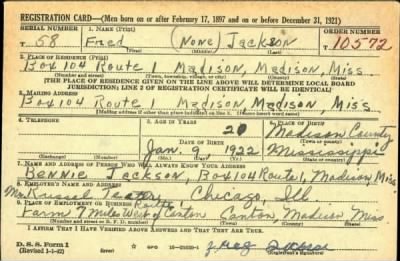 REGISTRATION CARD—(Men born on or after February 17, 1897 and on or before December 31, 1921)
SERIAL NUMBER 1. NAME (Print) ORDER NUMBER
T 58 Fred (None) Jackson 10572
(First) (Middle) (Last)
2. PLACE OF RESIDENCE (Print)
Box 104 Route 1 Madison, Madison, Miss.
(Number and street) (Town, township, village, or city) (County) (State)
[THE PLACE OF RESIDENCE GIVEN ON THE LINE ABOVE WILL DETERMINE LOCAL BOARD
JURISDICTION; LINE 2 OF REGISTRATION CERTIFICATE WILL BE IDENTICAL]
3. MAILING ADDRESS
Box 104 Route 1 Madison Madison Miss
[Mailing address if other than place indicated on line 2. If same insert word same]
4. TELEPHONE 5. AGE IN YEARS 6. PLACE OF BIRTH
20 Madison County
DATE OF BIRTH
Jan. 9 1922 Mississippi
7. NAME AND ADDRESS OF PERSON WHO WILL ALWAYS KNOW YOUR ADDRESS
Bennie Jackson, Box 104 Route 1, Madison, Miss
8. EMPLOYER'S NAME AND ADDRESS
Chicago, Ill.
9. PLACE OF EMPLOYMENT OR BUSINESS
Farm 7 Mile West of Canton Canton, Madison Miss.
I AFFIRM THAT I HAVE VERIFIED ABOVE ANSWERS AND THAT THEY ARE TRUE.
D. S. S. Form 1
(Revised 1-1-42)
(Registrant's signature)